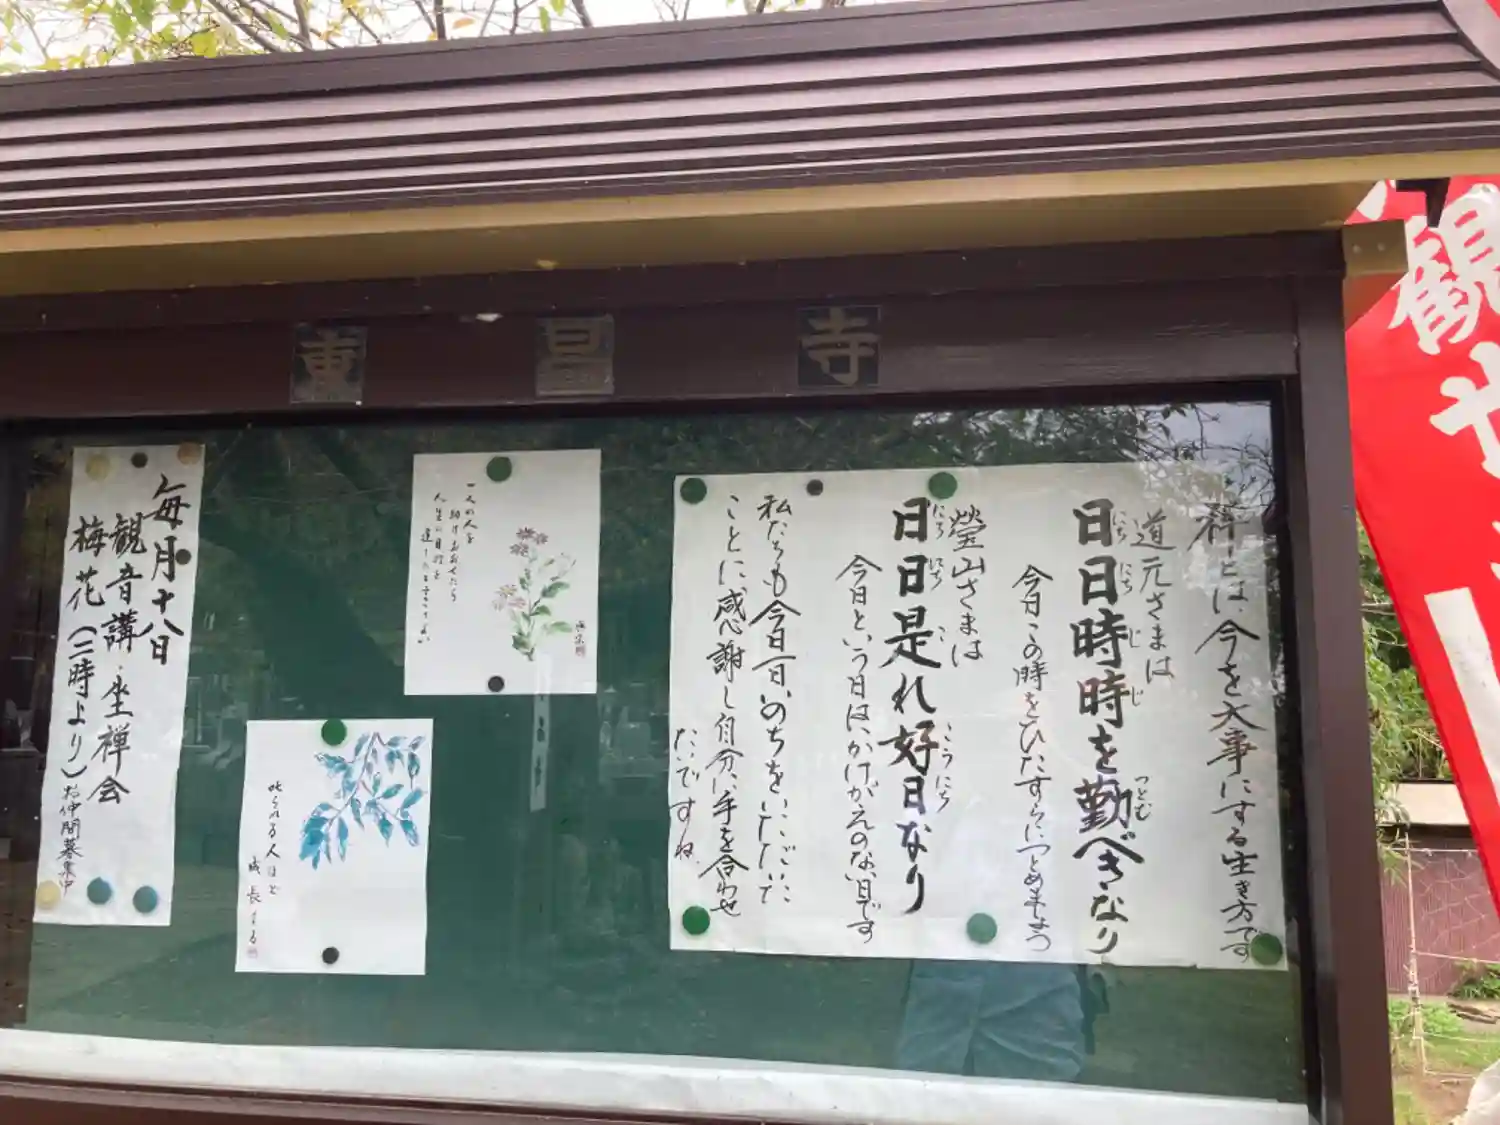 東昌寺
禅とは、今を大事にする生き方です
道元さまは
日日時時を勤べきなり
にちにちじじ
つとむ
今日この時をひたすらにつとめましょう
瑩山さまは
日日是れ好日なり
にちにちこ
こうにち
今日という日は、かけがえのない日です
私たちも今日一日いのちをいただいた
ことに感謝し自分に手を合わせ
たいですね
一人の人を
人生の目的を
達したることなし
叱られる人ほど
成長する
毎月十八日
観音講・坐禅会
梅花(二時より)お仲間募集中
観世